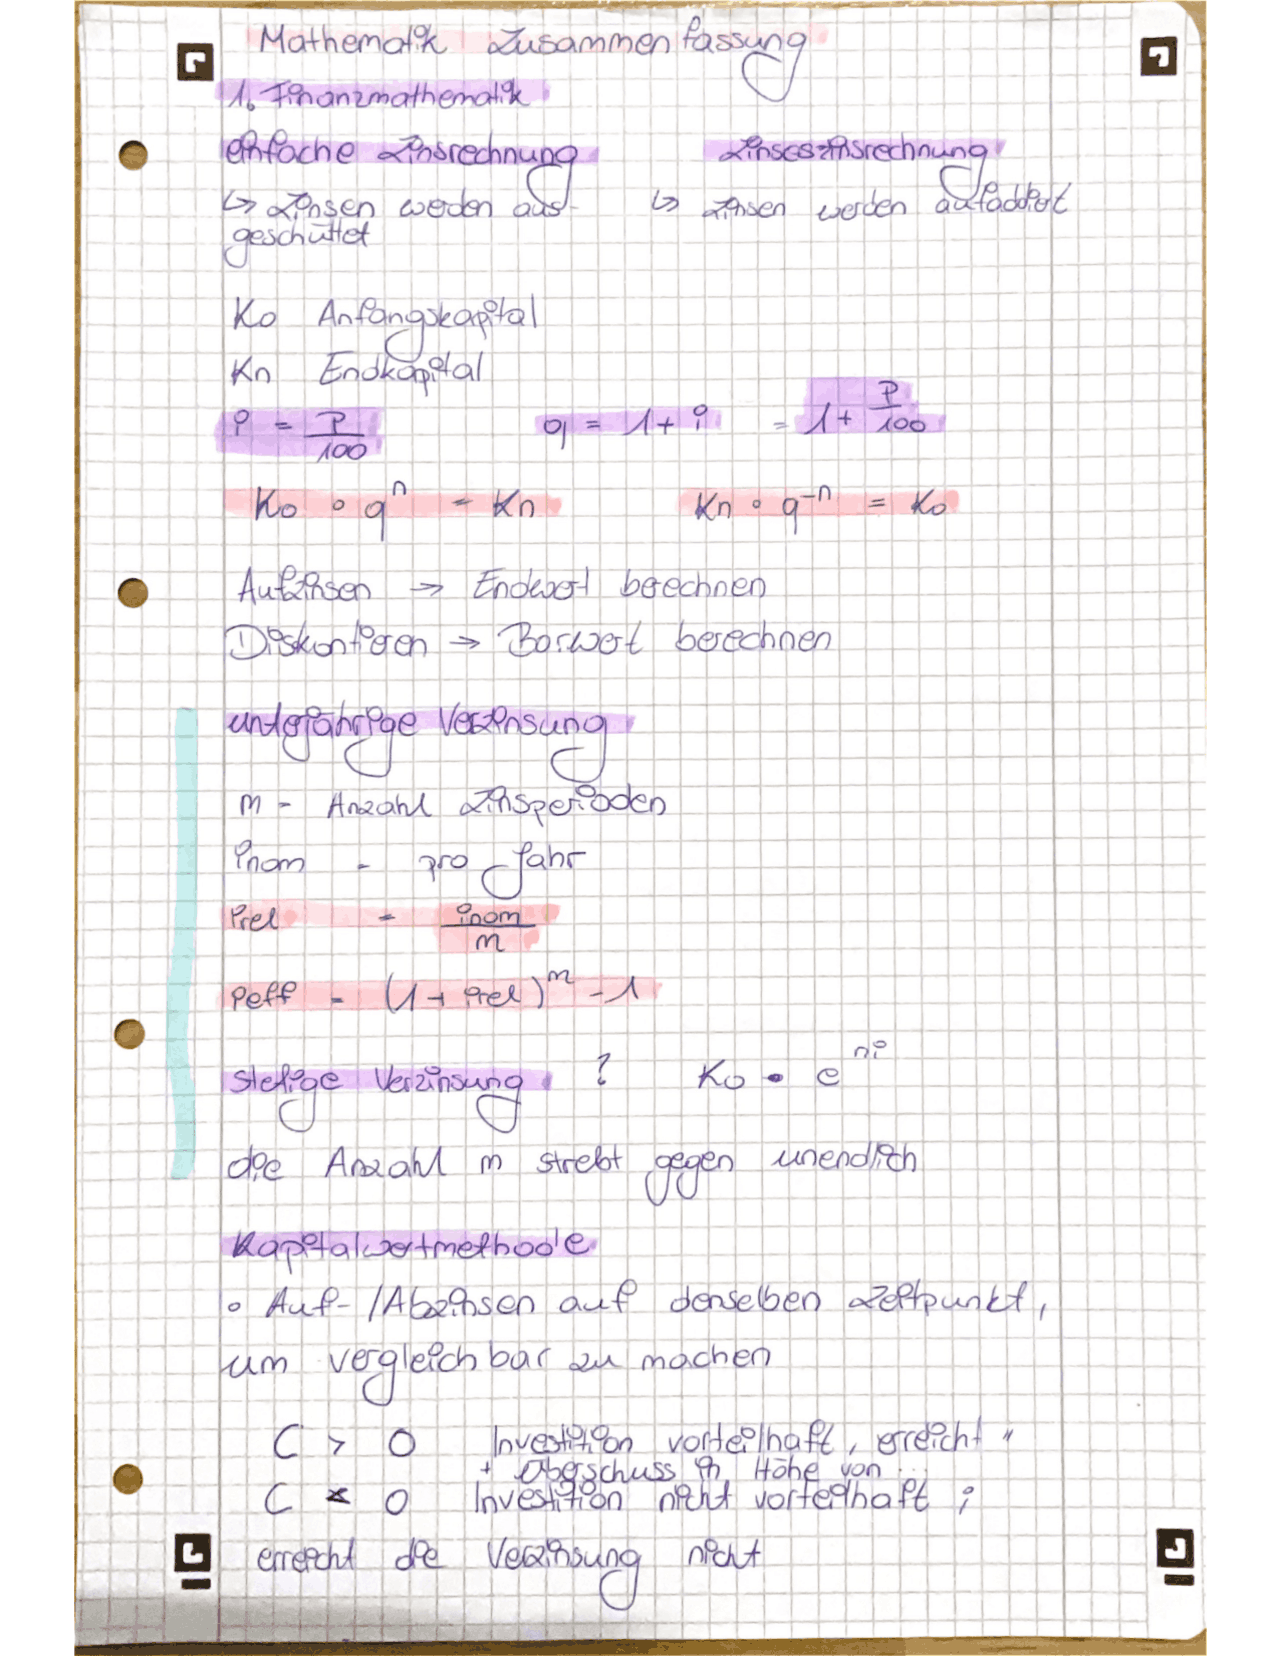 Mathematik Zusammenfassung
1. Finanzmathematik
einfache Zinsrechnung Zinseszinsrechnung
↳ Zinsen werden aus- ↳ Zinsen werden aufaddiert
geschüttet
K0 Anfangskapital
Kn Endkapital
i = P/100 q = 1 + i = 1 + P/100
K0 · q^n = Kn Kn · q^-n = K0
Aufzinsen → Endwert berechnen
Diskontieren → Barwert berechnen
unterjährige Verzinsung
m - Anzahl Zinsperioden
inom - pro Jahr
irel = inom/m
ieff = (1 + irel)^m - 1
stetige Verzinsung ? K0 · e^ni
die Anzahl m strebt gegen unendlich
Kapitalwertmethode
• Auf-/Abzinsen auf denselben Zeitpunkt,
um vergleichbar zu machen
C > 0 Investition vorteilhaft, erreicht "
+ Überschuss in Höhe von ...
C < 0 Investition nicht vorteilhaft ;
erreicht die Verzinsung nicht